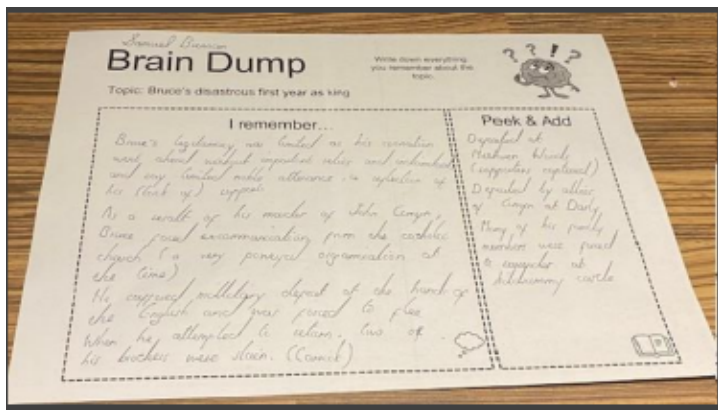 Samuel
Brain Dump
Write down everything
you remember about the
topic.
Topic: Bruce's disastrous first year as king
I remember...
Bruce's legitimacy was limited as his coronation
went ahead without important relics and
and very limited noble attendance, a reflection of
his (lack of) support.
As a result of his murder of John Comyn,
Bruce faced excommunication from the catholic
church (a very powerful organisation at
the time)
He suffered military defeat at the hands of
the English and was forced to flee
When he attempted to return, two of
his brothers were slain. (Carrick)
Peek & Add
Defeated at
Methven Woods
(supporters captured)
Defeated by allies
of Comyn at Dalry
Many of his family
members were forced
to surrender at
Kildrummy castle